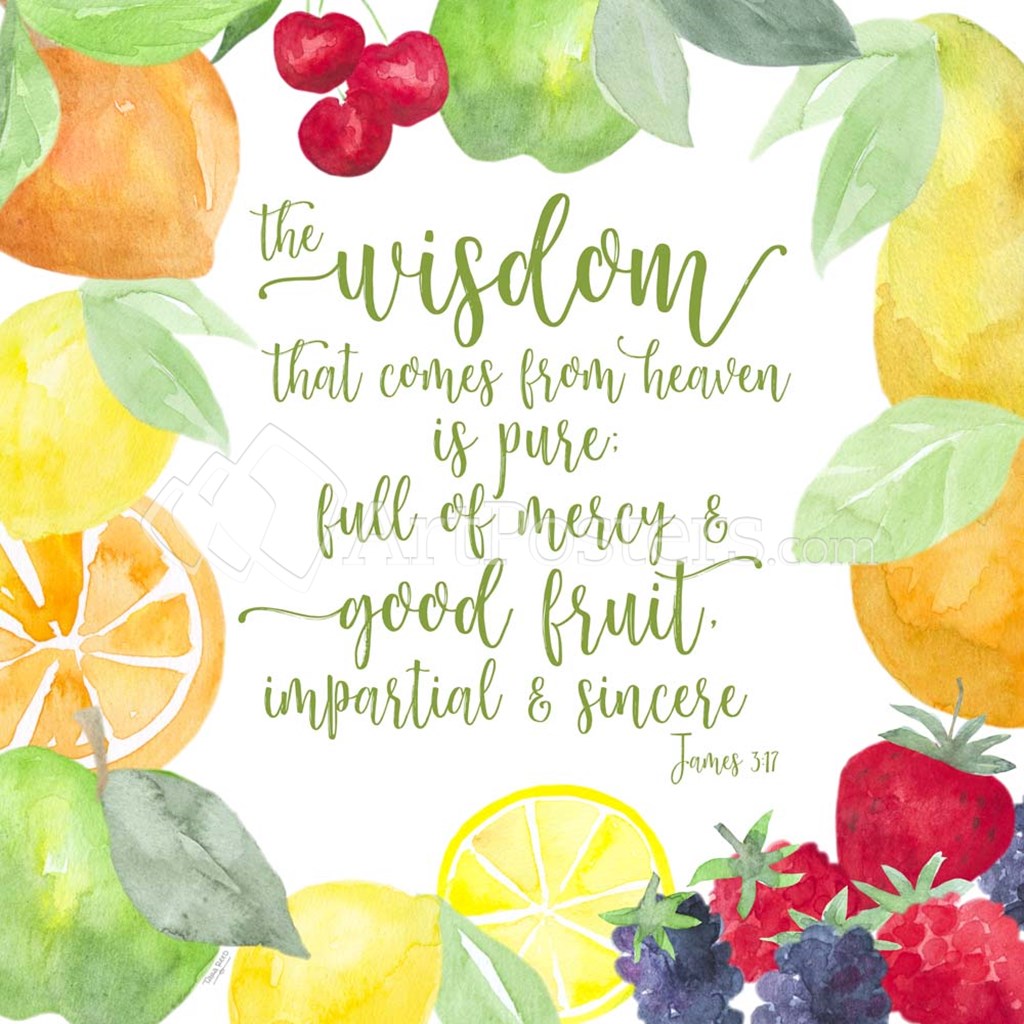 the
wisdom
that comes from heaven
is pure;
full of mercy &
good fruit,
impartial & sincere
James 3:17
ArtPosters.com